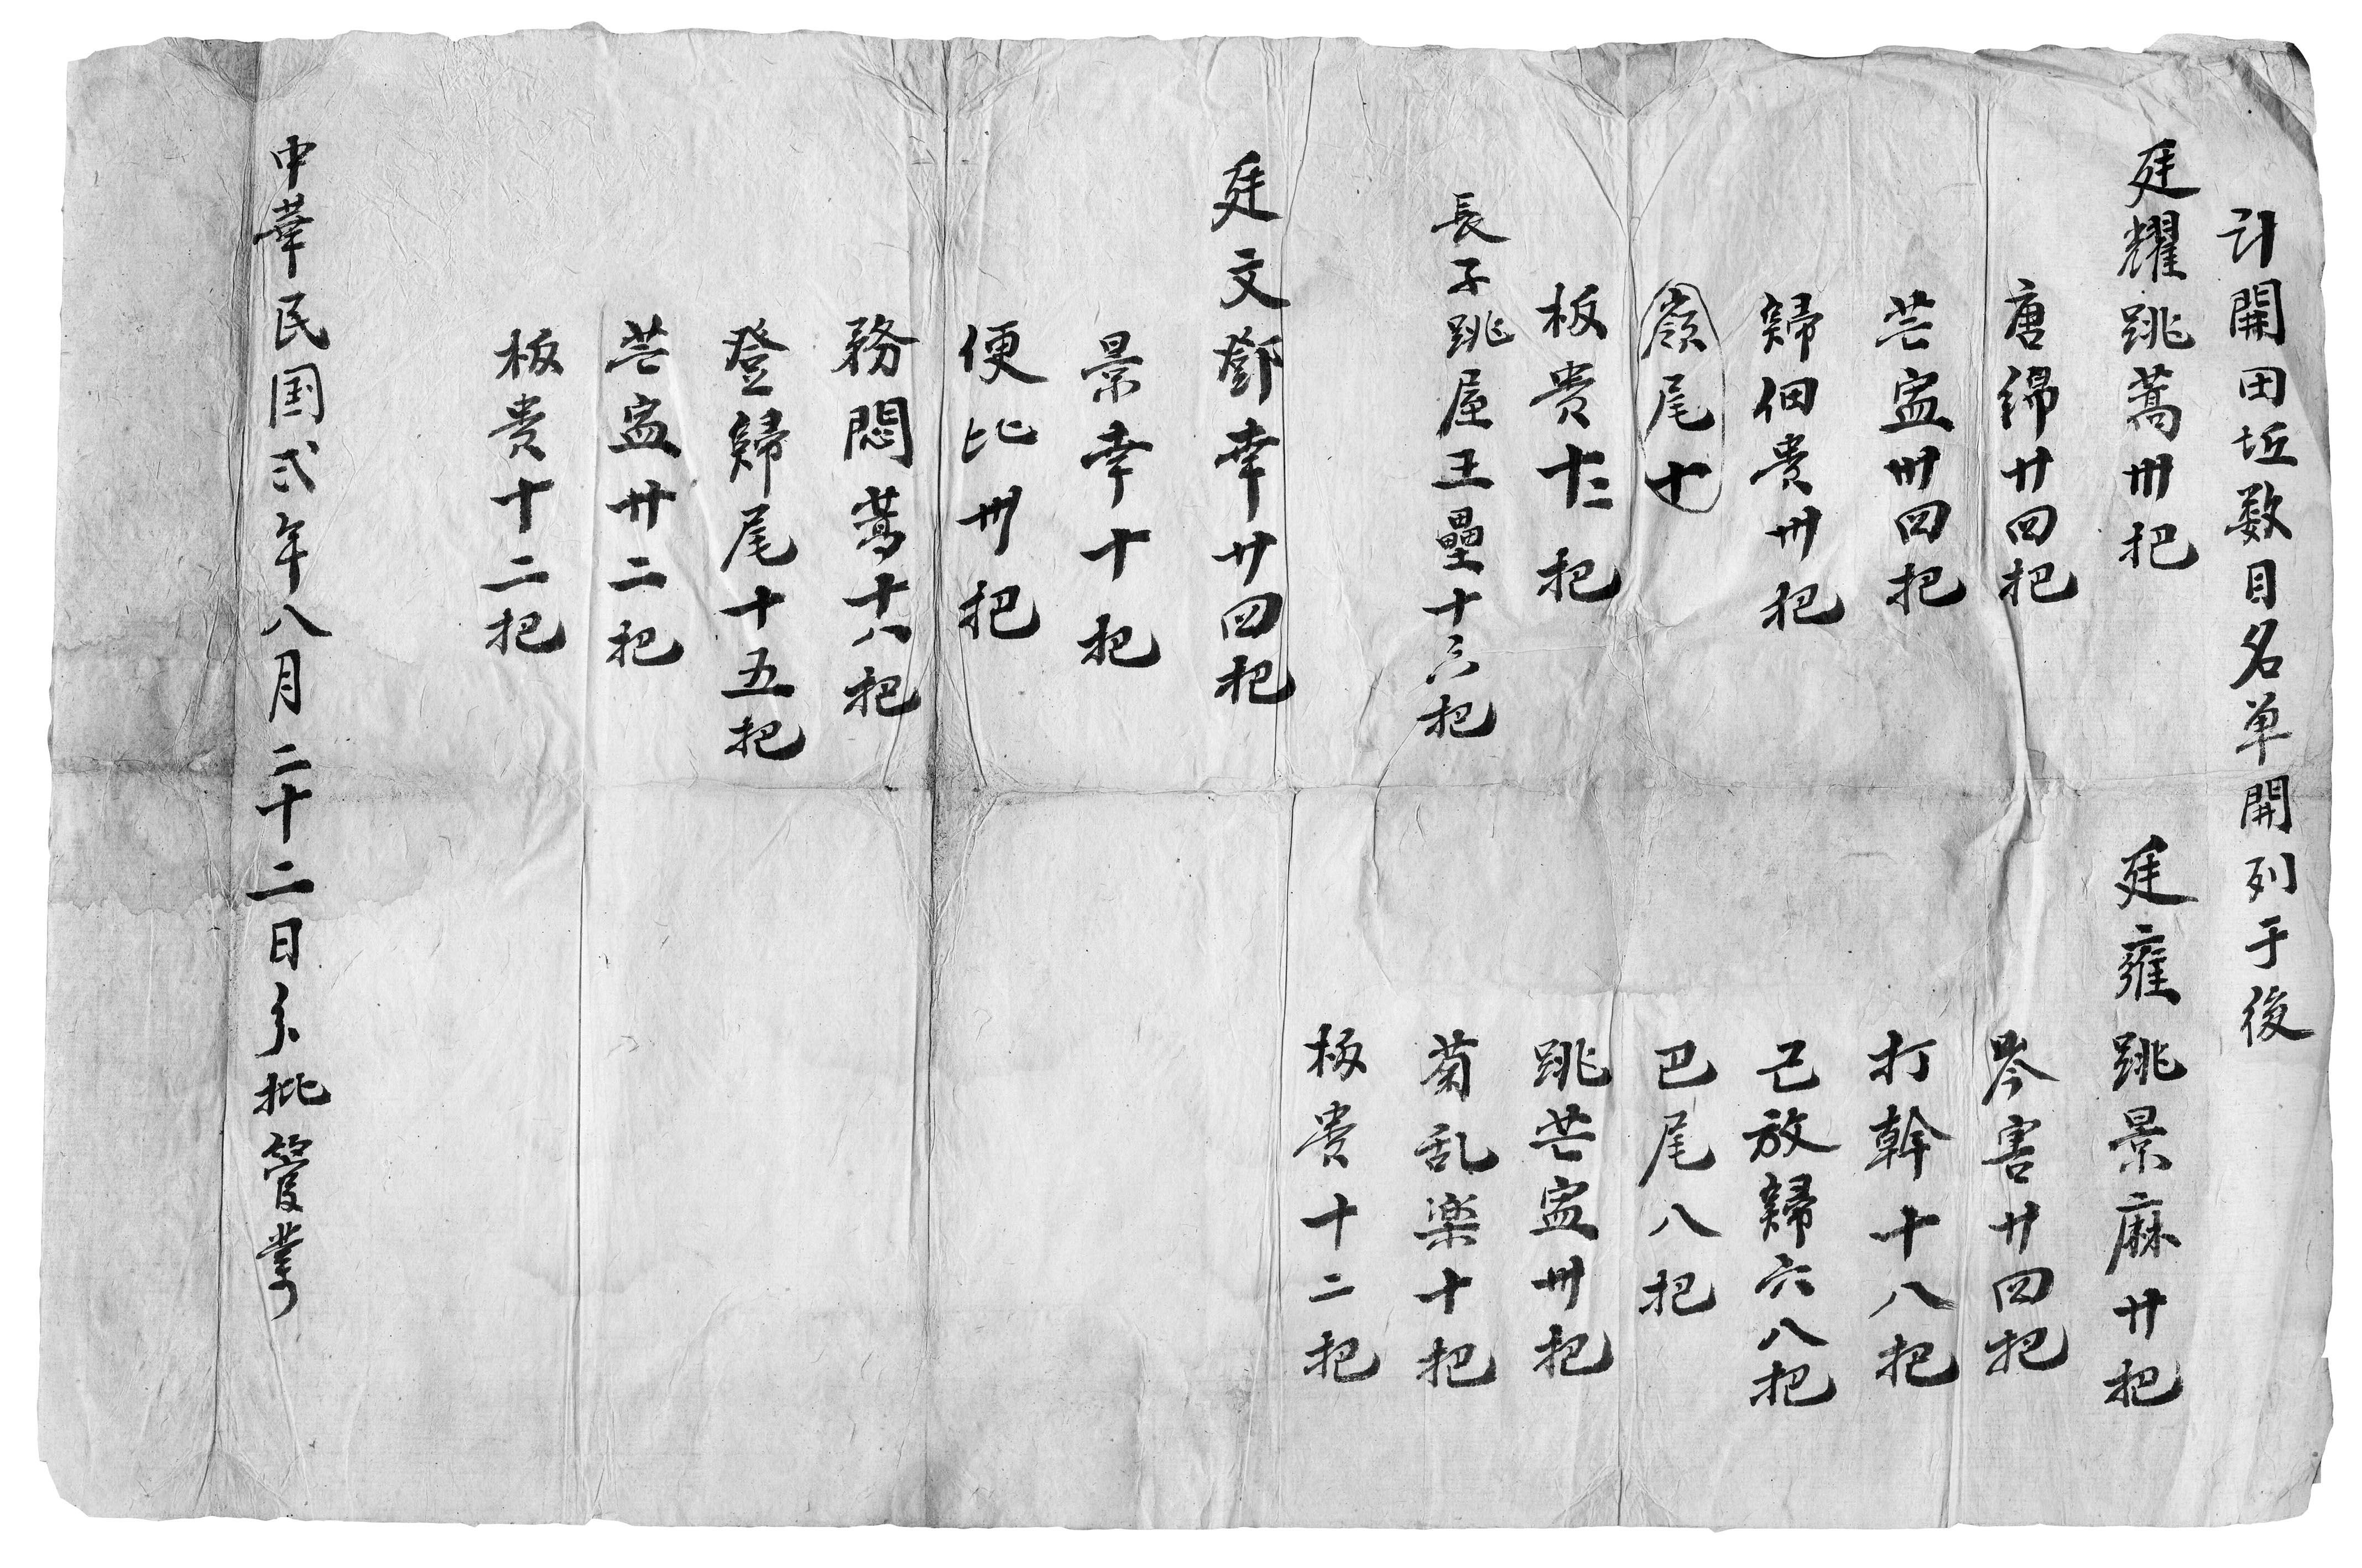 計開田坵数目名单開列于後
廷耀跳蒿卅把
唐綿廿四把
芒盆卅四把
歸佃貴卅把
嶺尾十
板貴十二把
長子跳屋王壘十六把
廷雍跳景麻廿把
岑害廿四把
打幹十八把
己放歸六八把
巴尾八把
跳芒盆卅把
菊乱楽十把
板貴十二把
廷文鄧幸廿四把
景幸十把
便比卅把
務悶蒿十八把
登歸尾十五把
芒盆廿二把
板貴十二把
中華民国弍年八月二十二日 批管業